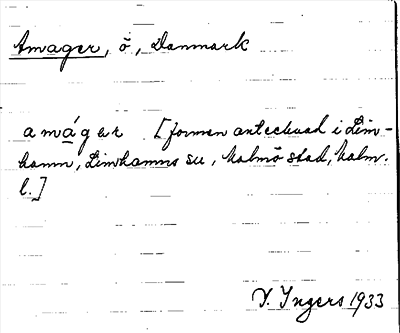 Amager, ö, Danmark
amágar [formen antecknad i Lim-
hamn, Limhamns sn, Malmö stad, Malm.
l.]
V. Ingers 1933